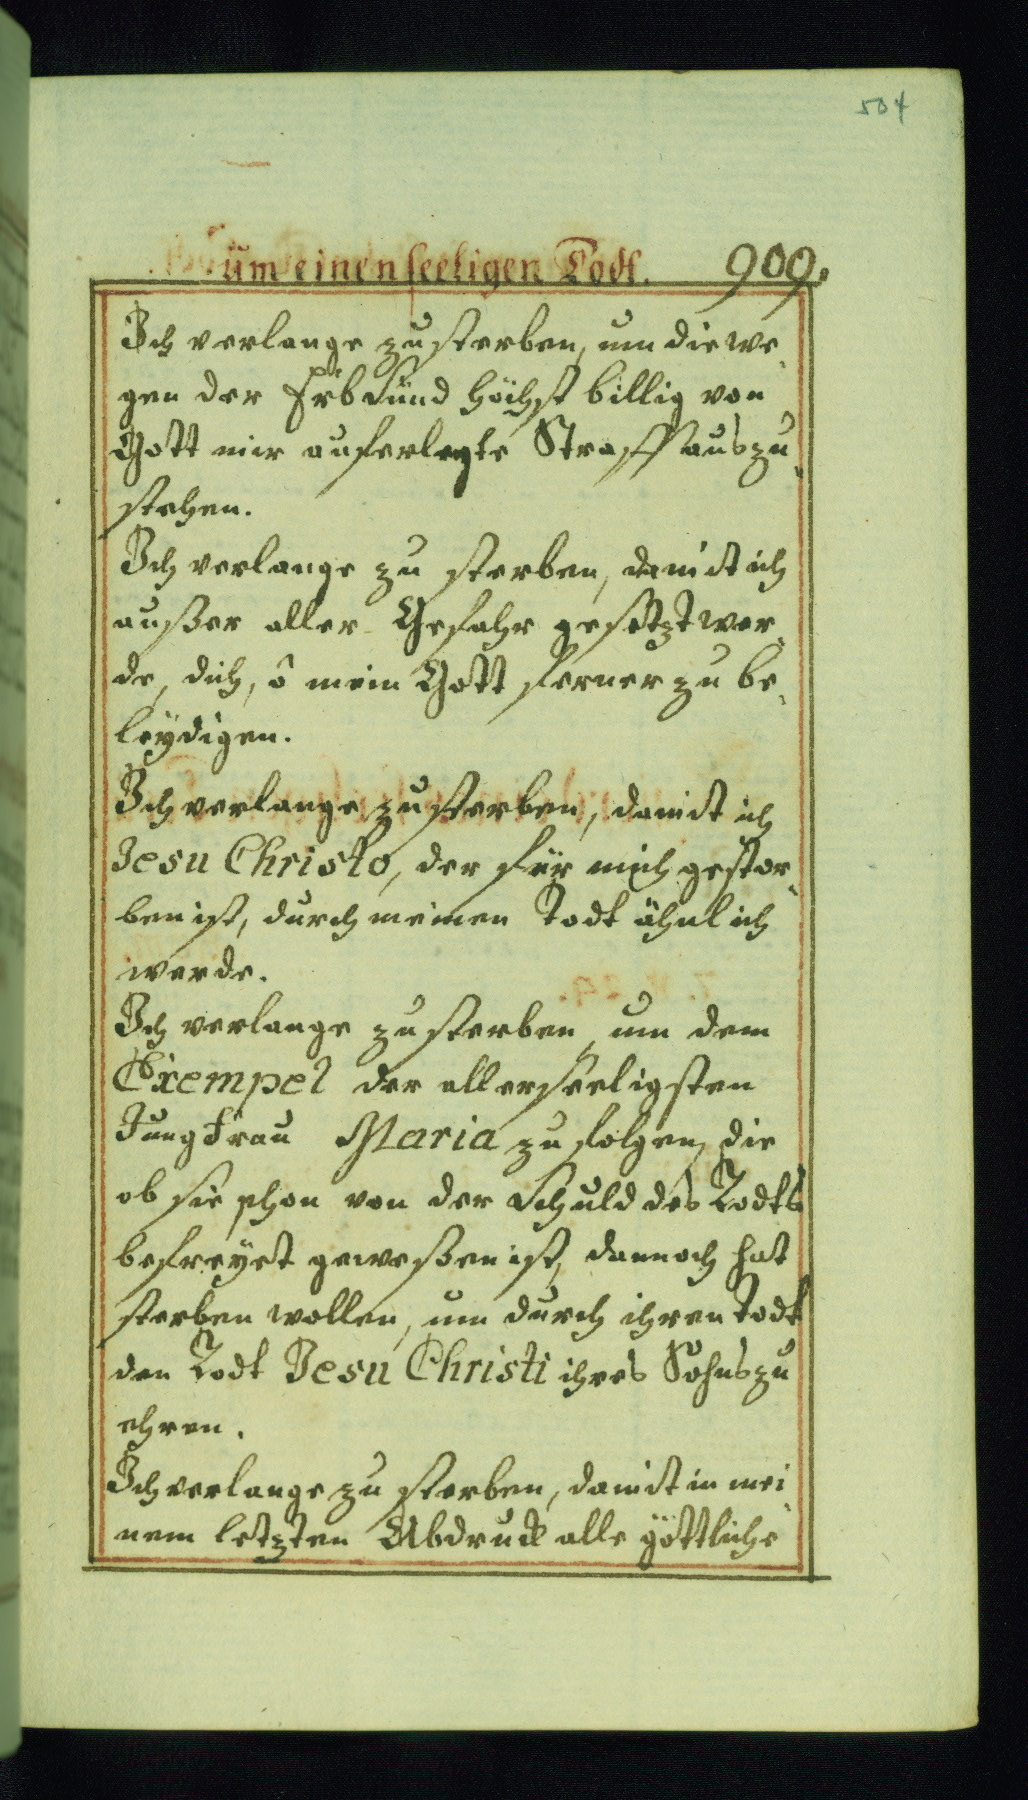 504
um einen seeligen Todt. 909.
Ich verlange zu sterben, um die we,
gen der Erbsünd höchst billig von
Gott mir auferlegte Straff auszu,
stehen.
Ich verlange zu sterben, damit ich
außer aller Gefahr gesetzt wer,
de, dich, ô mein Gott ferner zu be,
leÿdigen.
Ich verlange zu sterben, damit ich
Jesu Christo, der für mich gestor,
ben ist, durch meinen Todt ähnlich
werde.
Ich verlange zu sterben, um dem
Exempel der allerseeligsten
Jungfrau Maria zu folgen, die
ob sie schon von der Schuld des Todts
befreÿet geweßen ist, dannoch hat
sterben wollen, um durch ihren Todt
den Todt Jesu Christi ihres Sohns zu
ehren.
Ich verlange zu sterben, damit in mei
nem letzten Abdruck alle göttliche